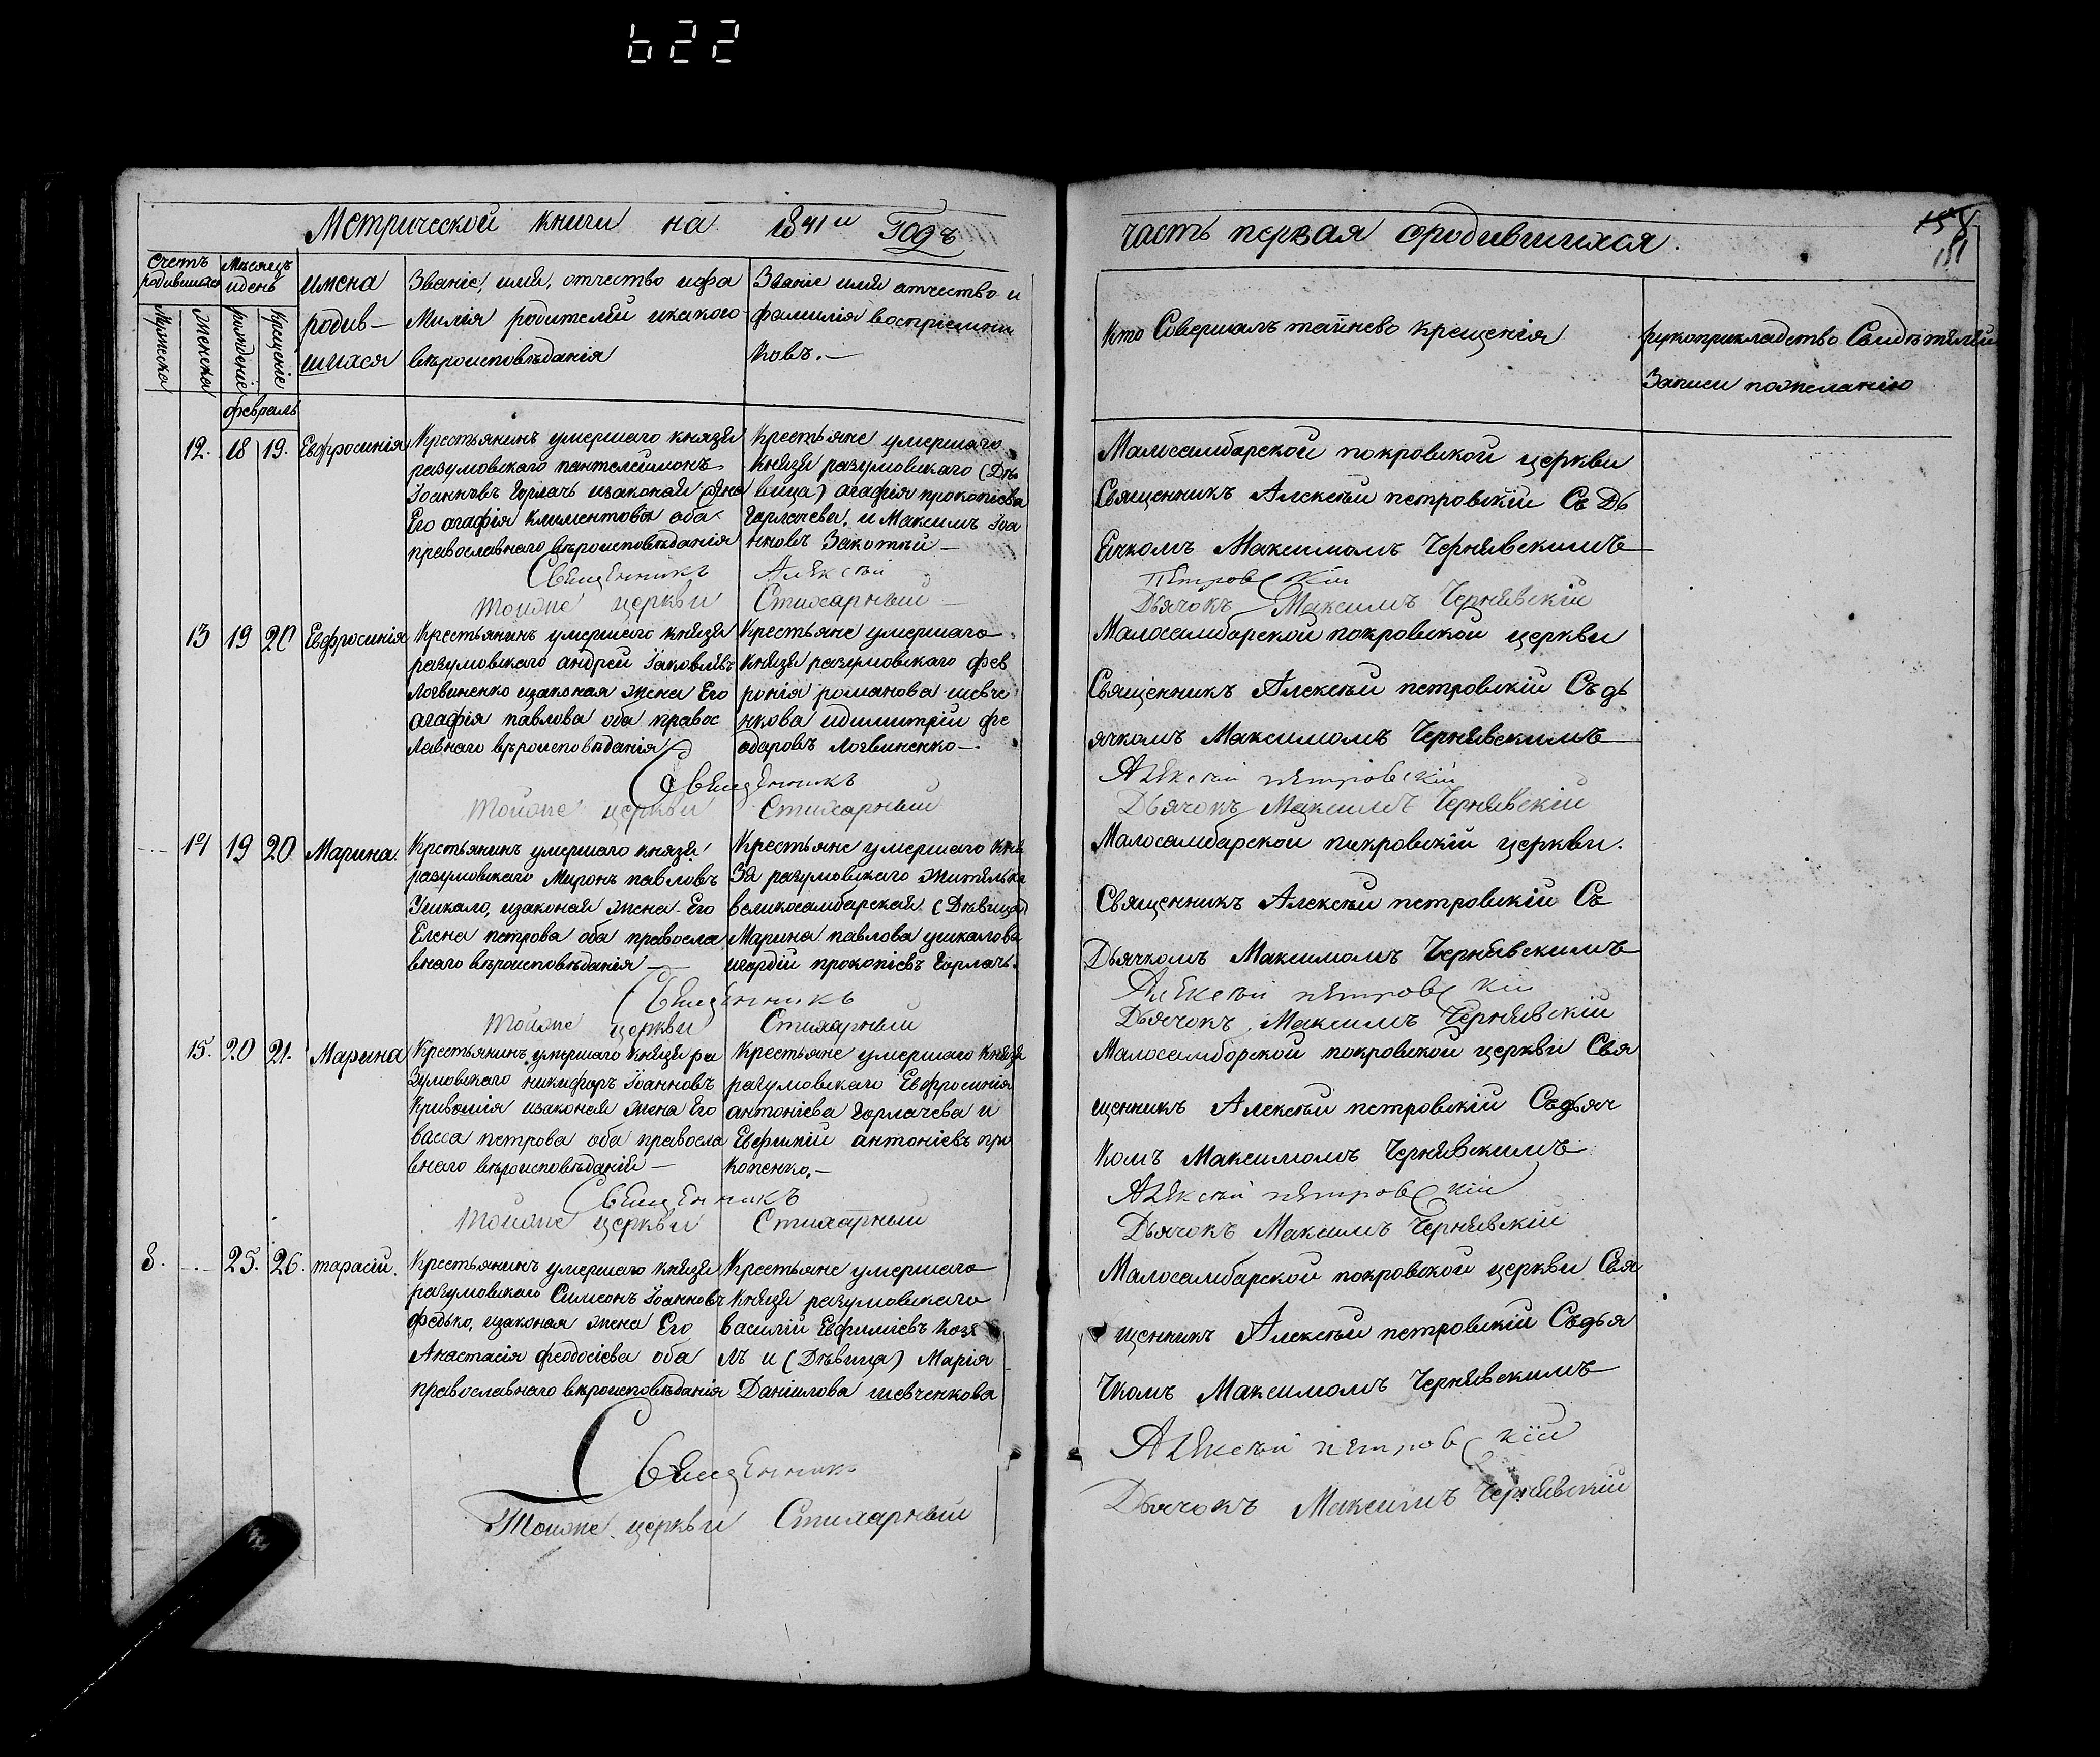 622
Метрической книги на 1841й Годъ
часть первая ородившихся.
158
151
Счетъ родившихся
Мѣсяцъ идень
имена родив-шихся
Званіе, имя, отчество ифа
милія родителей икакого
вѣроисповѣданія
Званіе имя отчество и
фамилія воспріемни
ковъ.—
Кто Совершалъ таинсво крещенія
рукоприкладство Свидѣтелей
Записи пожеланію
Мужеска
Женска
рожденіе
Крещеніе
февраль
12. 18 19. Евфросинія
Крестьянинъ умершаго князя
разумовскаго пантелеимонъ
Іоанновъ Горлачь изаконая жена
Его агафія климентова оба
православнаго вѣроисповѣданія
Крестьяне умершаго
князя разумовскаго (Дѣ
вица) агафія прокопіева
Горлачева, и Максимъ Іоа
нновъ Закотній—
Малосамборской покровской церкви
Священникъ Алексѣй петровскій Съ Дь
Ечкомъ Максимомъ Чернявскимъ
Священникъ Алексѣй Петровскій
Тойже церкви Стихарный Дьячокъ Максимъ Чернявскій
13 19 20 Евфросинія
Крестьянинъ умершаго князя
разумовскаго андрей Іаковлевъ
Логвиненко изаконая жена Его
агафія павлова оба правос
лавнаго вѣроисповѣданія
Крестьяне умершаго
князя разумовскаго фев
ронія романова шевче
нкова идимитрій фе
одоровъ Логвиненко—.
Малосамборской покровской церкви
Священникъ Алексѣй петровскій Съ дь
ячкомъ Максимомъ Чернявскимъ
Священникъ Алексѣй петровскій
Тойже церкви Стихарный Дьячокъ Максимъ Чернявскій
14 19 20 Марина.
Крстьянинъ умершаго князя
разумовскаго Миронъ павловъ
Ушкало, изаконая жена Его
Елена петрова оба правосла
внаго вѣроисповѣданія—
Крестьяне умершаго кня
зя разумовскаго жителька
великосамборская (Дѣвица)
Марина павлова ушкалова
игордій прокопіевъ Горлачь.
Малосамборской пакровскій церкви.
Священникъ Алексѣй петровскій Съ
Дьячкомъ Максимомъ Чернявскимъ
Священникъ Алексѣй петровскій
Тойже церкви Стихарный Дьячокъ Максимъ Чернявскій
15. 20 21. Марина
Крестьянинъ умершаго князя ра
зумовскаго никифоръ Іоанновъ
Кривошія изаконая жена Его
васса петрова оба правосла
внаго вѣроисповѣданія—
Крестьяне умершаго князя
разумовскаго Евфросинія
антоніева Горлачева и
Евфимій антоніевъ при
коненко,—
Малосамборской покровской церкви Свя
щенникъ Алексѣй петровскій Съдьяч
Комъ Максимомъ Чернявскимъ
Священникъ Алексѣй петровскій
Тойже церкви Стихарный Дьячокъ Максимъ Чернявскій
8. 25. 26. тарасій.
Крестьянинъ умершаго князя
разумовскаго Симеонъ Іоанновъ
федько, изаконая жена Его
Анастасія феодосіева оба
православнаго вѣроисповѣданія
Крестьяне умершаго
князя разумовскаго
василій Евфиміевъ козе
лъ и (Дѣвица) Марія
Даніилова шевченкова
Малосамборской покровской церкви Свя
щенникъ Алексѣй петровскій Съдья
Чкомъ Максимомъ Чернявскимъ
Священникъ Алексѣй петровскій
Тойже церкви Стихарный Дьячокъ Максимъ Чернявскій